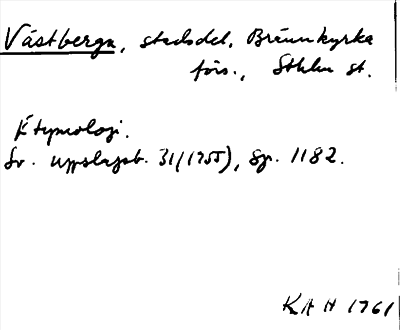 Västberga, stadsdel, Brännkyrka
förs., Sthlm st.
Etymologi.
Sv. uppslagsb. 31 (1955), sp. 1182.
KAH 1961